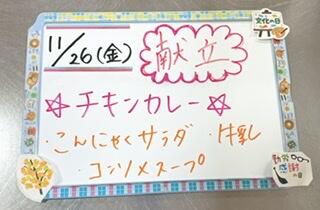 文化の日
11/26(金) 献立
☆チキンカレー☆
・こんにゃくサラダ ・牛乳
・コンソメスープ
勤労
感謝
の日